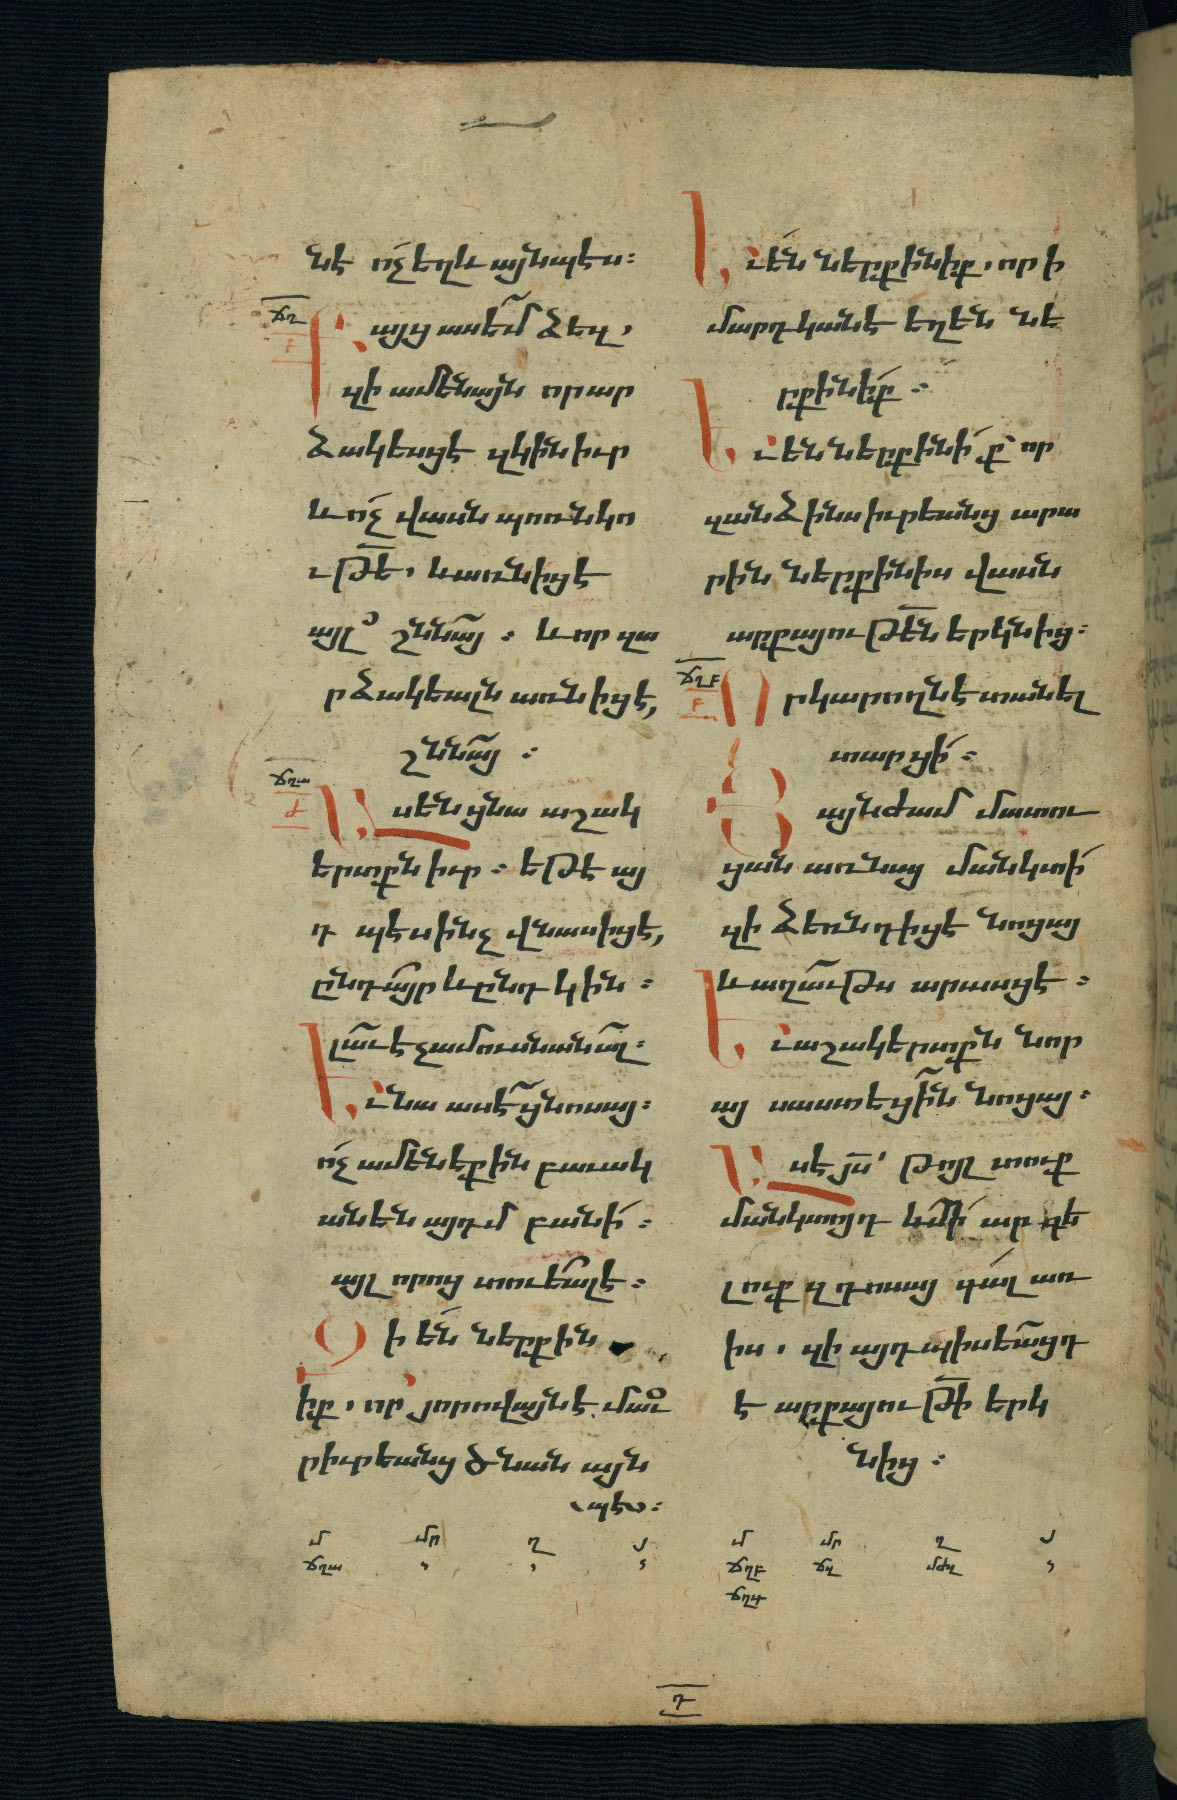 նէ ոչ եղև այնպէս։
ճղ
բ
Բայց ասեմ ձեզ,
զի ամենայն որ ար
ձակեսցէ զկին իւր
և ոչ վասն պոռնկո
ւթե̅, և առնիցէ
այլ՝ շնն̅այ ։ և որ զա
րձակեալն առնիցէ,
շննայ ։
ճղա
ժ
Ասեն ցնա աշակ
երտքն իւր ։ եթէ այ
դ պէս ինչ վնասիցէ,
ընդ այր և ընդ կին ։
լաւ է չամուսնանալ։
Եւ նա ասէ ցնոսայ։
ոչ ամենեքին բաւակ
անեն այդմ բանի ։
այլ որոց տուեալ է ։
Զի են ներքին
իք, որ յորովայնէ մաւ
րիւրեանց ծնան այն
պէս։
մ մր ղ յ
ճղա , , ,
Եւ են ներքինիք, որ ի
մարդկանէ եղեն նե
րքինիք ։
Եւ են ներքինիք՝ որ
զանձինս իւրեանց արա
րին ներքինիս վասն
արքայութե̅ն երկնից։
ճղբ
բ
Որ կարողն է տանել
տարցի ։
Յայնժամ մատու
ցան առնայ մանկտի
զի ձեռն դիցէ նոցայ
և աղաւթս արասցէ ։
Եւ աշակերտքն նոր
այ սաստեցին նոցայ։
Ասէ յս̅՝ թոյլ տուք
մանկտոյդ և մի արգե
լուք զդոսայ գալ առ
իս, զի այդպիսեացդ
է արքայութի̅ երկ
նից ։
մ մր ղ յ
ճղբ ճղ մժղ ,
ճղգ
դ